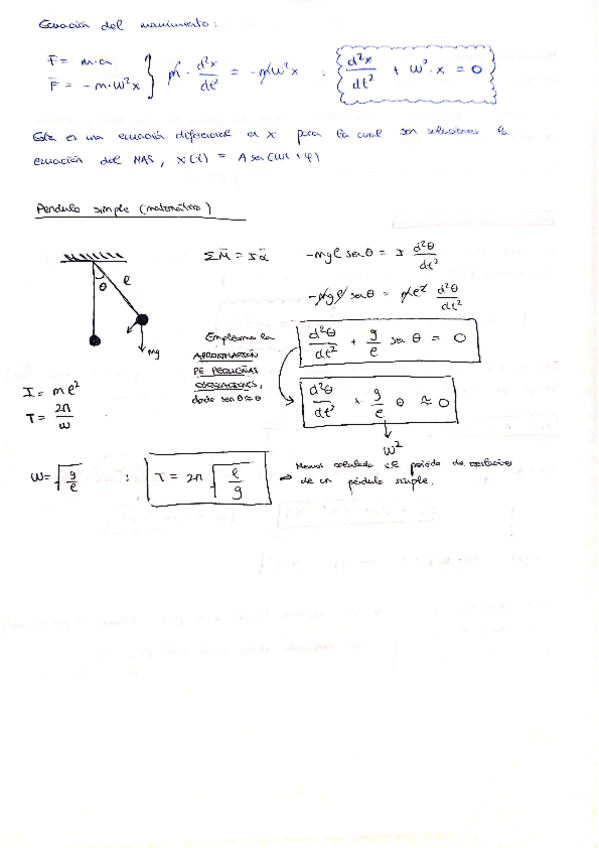 Ecuación del movimiento:
F̄ = m·a
F̄ = -m·ω²x } m · d²x/dt² = -mω²x : d²x/dt² + ω²·x = 0
Esta es una ecuación diferencial en x para la cual son soluciones la
ecuación del MAS, x(t) = A sen(ωt + φ)
Péndulo simple (matemático)
ΣM̄ = Iᾱ -mgl senθ = I d²θ/dt²
-mgl senθ = ml² d²θ/dt²
θ l
mg
Empleamos la
APROXIMACIÓN
DE PEQUEÑAS
OSCILACIONES,
donde sen θ ≈ θ
d²θ/dt² + g/l sen θ = 0
d²θ/dt² + g/l θ ≈ 0
ω²
I = ml²
T = 2π/ω
ω = √(g/l) : T = 2π √(l/g) → Hemos calculado el periodo de oscilaciones
de un péndulo simple.